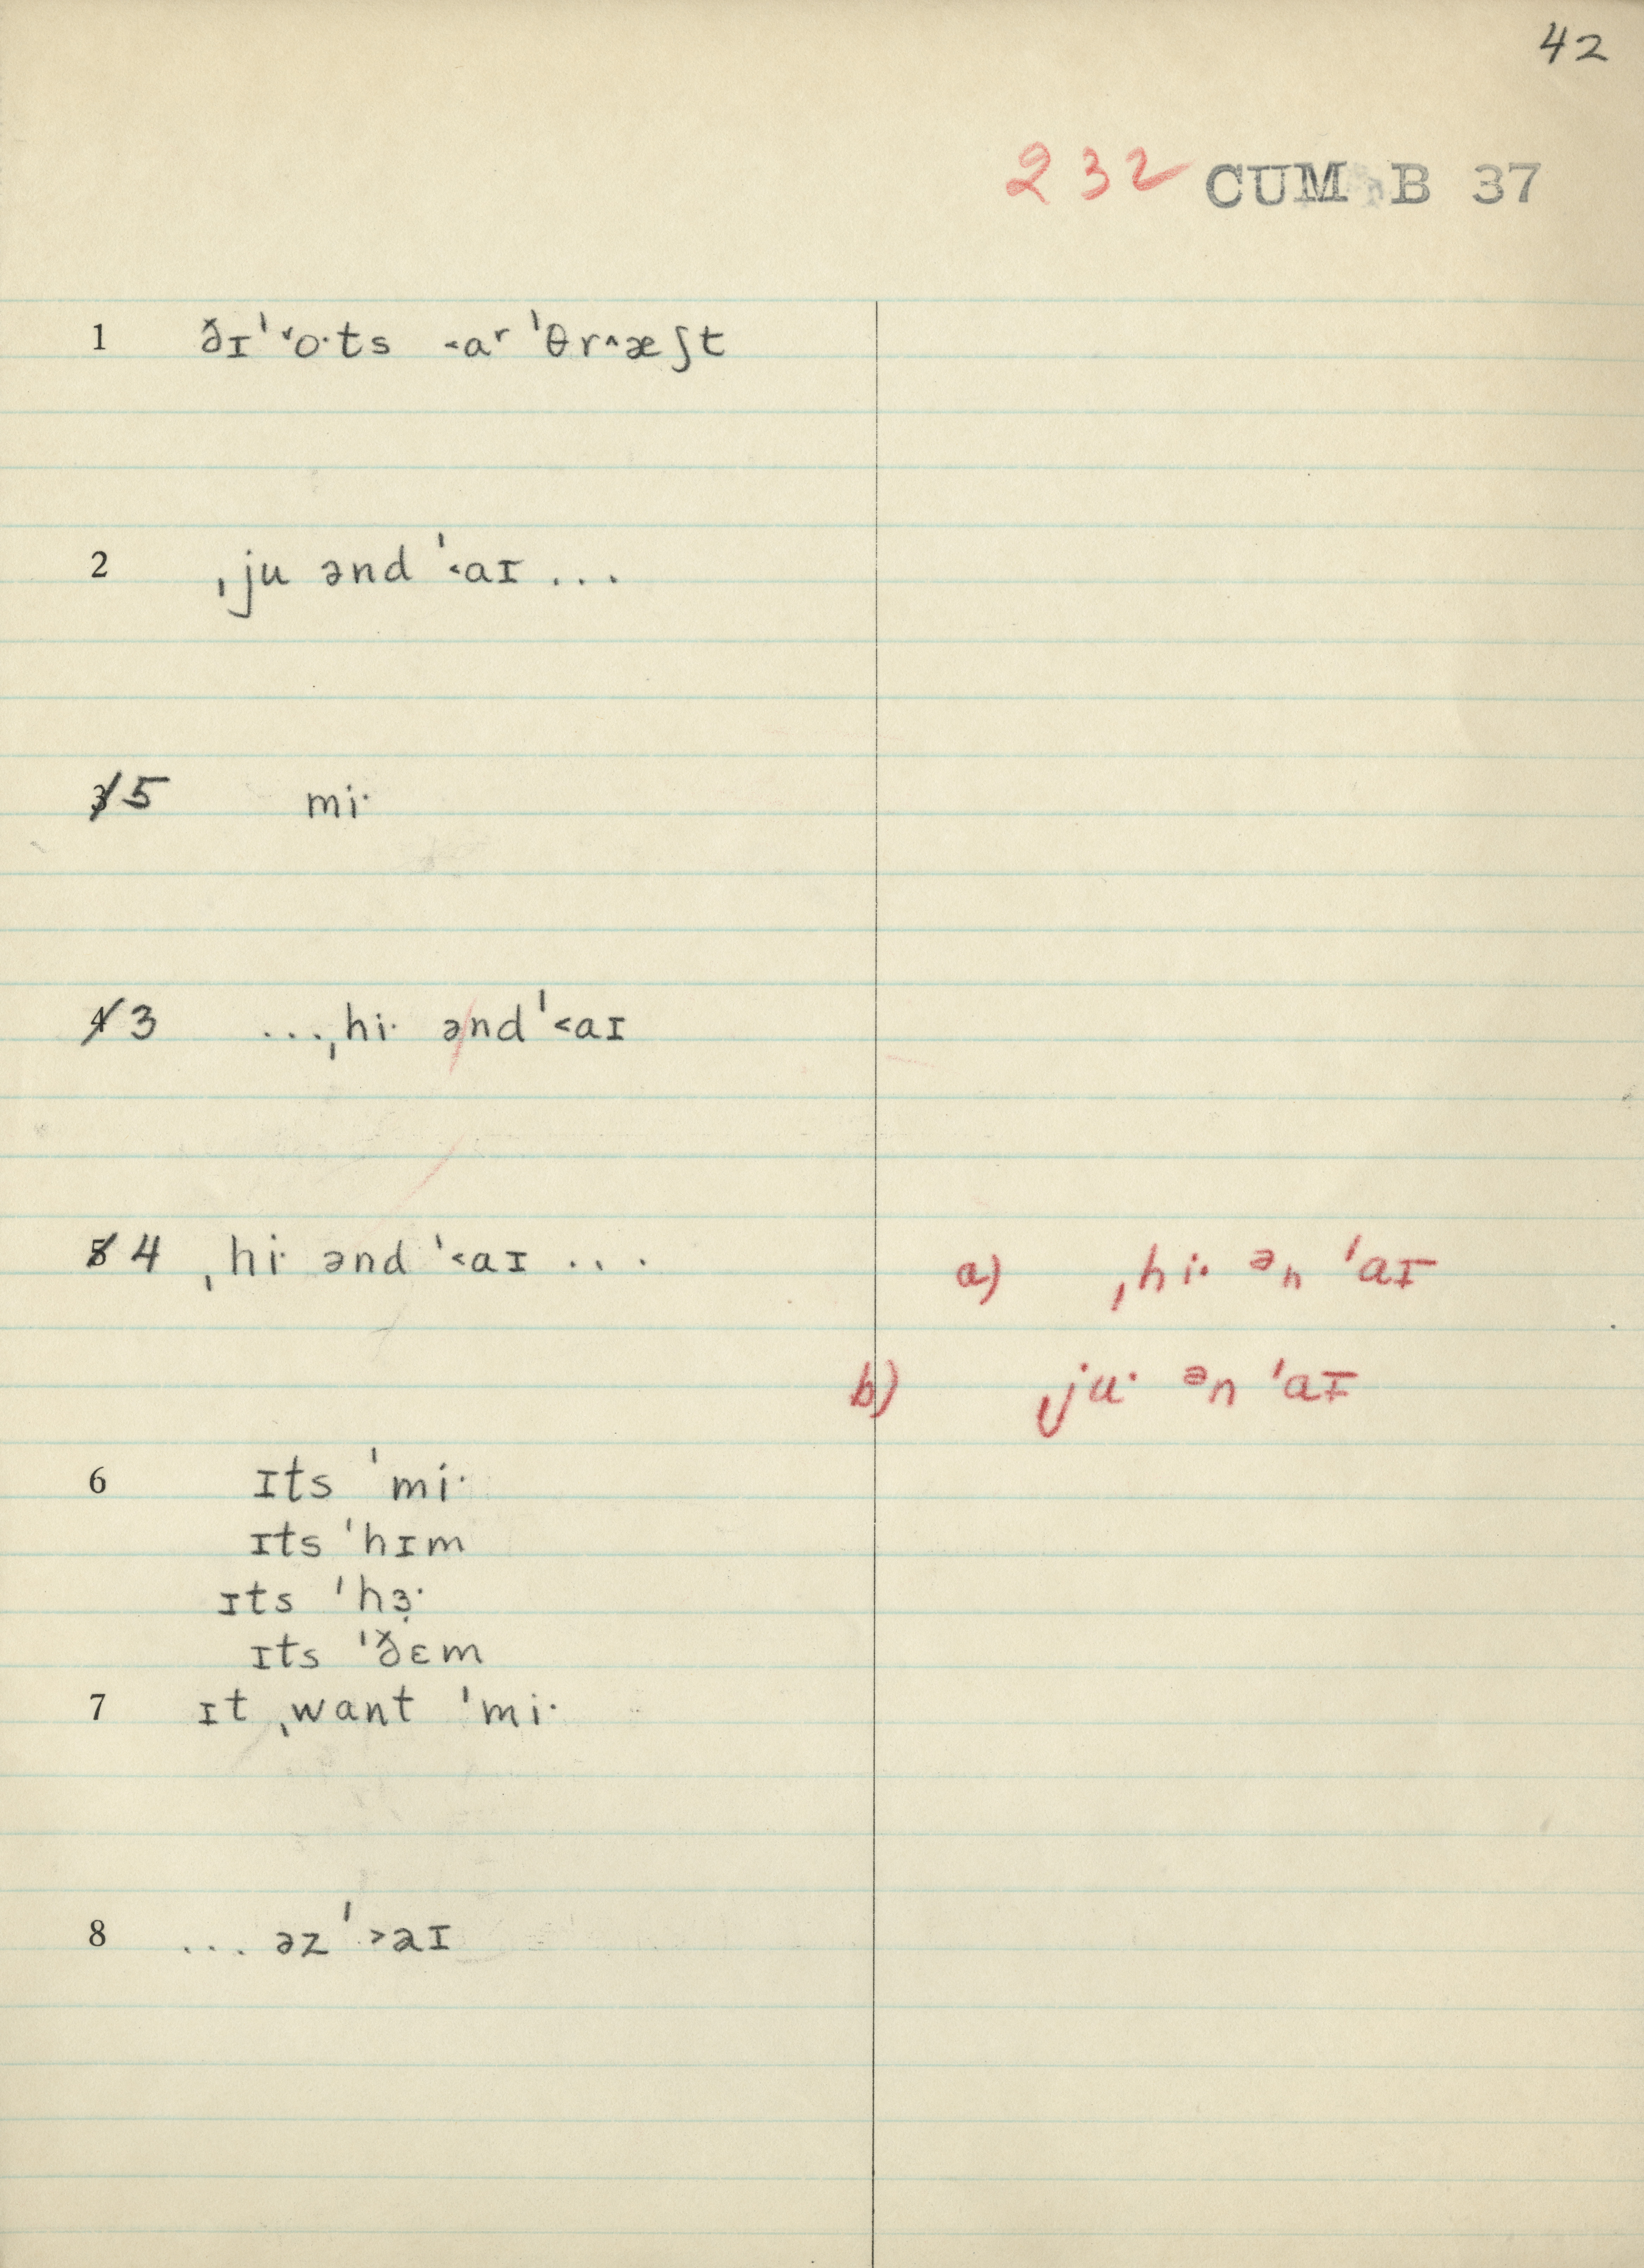 42
232 CUM B 37
1 ðɪˈ˅o·ts ˂aʳ ˈθr^æʃt
2 ˌju ənd ˈ˂aɪ ...
3 5 mi·
4 3 ...ˌhi· ənd ˈ˂aɪ
5 4 ˌhi· ənd ˈ˂aɪ ...
a) ˌhi· ᵊn ˈaɪ
b) ˌju· ᵊn ˈaɪ
6 ɪts ˈmi·
ɪts ˈhɪm
ɪts ˈhɜ̣·
ɪts ˈðɛm
7 ɪt ˌwant ˈmi·
8 ... əz ˈ˃aɪ